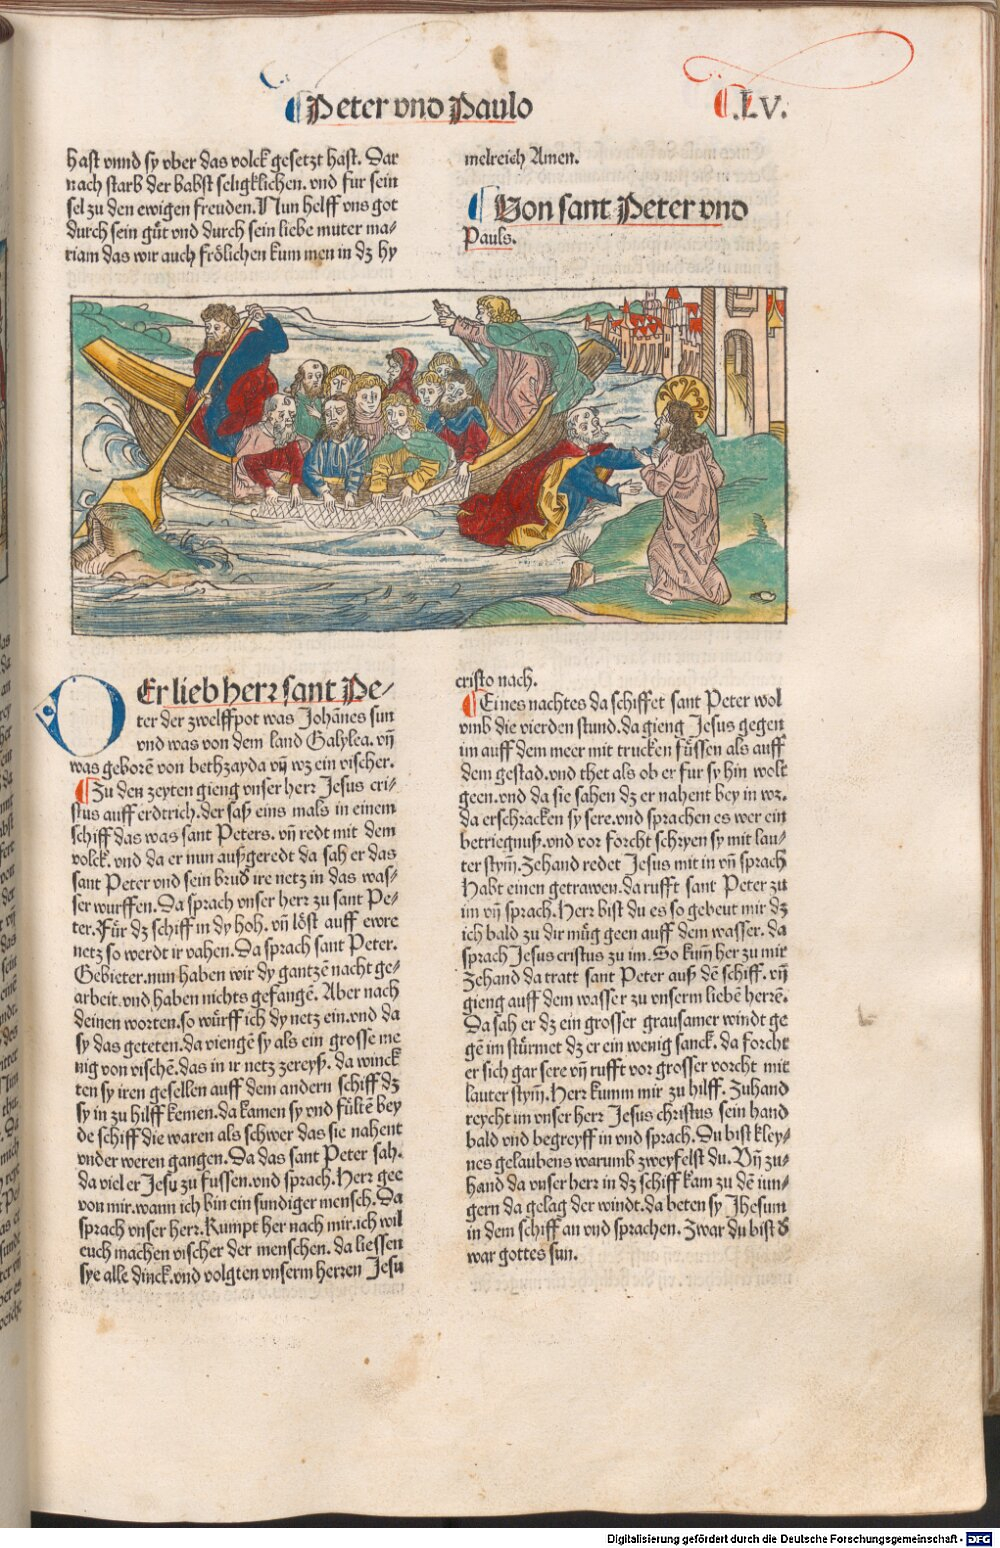 Peter vnd Paulo
.LV.
hast vnnd sy vber das volck gesetzt hast. Dar
nach starb der babst seligklichen. vnd fur sein
sel zu den ewigen freuden. Nun helff vns got
durch sein gůt vnd durch sein liebe muter ma-
riam das wir auch frölichen kum men in dz hy
melreich Amen.
Von sant Peter vnd
Pauls.
OEr lieb herr sant Pe-
ter der zwelffpot was Johānes sun
vnd was von dem land Galylea. vn̄
was geborē von bethzayda vn̄ wz ein vischer.
Zu den zeyten gieng vnser herr Jesus cri-
stus auff erdtrich. der saß eins mals in einem
schiff das was sant Peters. vn̄ redt mit dem
volck. vnd da er nun außgeredt da sah er das
sant Peter vnd sein brud ire netz in das was-
ser wurffen. Da sprach vnser herr zu sant Pe-
ter. Für dz schiff in dy hoh. vn̄ löst auff ewre
netz so werdt ir vahen. Da sprach sant Peter.
Gebieter. nun haben wir dy gantzē nacht ge-
arbeit. vnd haben nichts gefangē. Aber nach
deinen worten. so würff ich dy netz ein. vnd da
sy das geteten. da viengē sy als ein grosse me
nig von vischē. das in ir netz zereyß. da winck
ten sy iren gesellen auff dem andern schiff dz
sy in zu hilff kemen. da kamen sy vnd fültē bey
de schiff die waren als schwer das sie nahent
vnder weren gangen. Da das sant Peter sah.
da viel er Jesu zu fussen. vnd sprach. Herr gee
von mir. wann ich bin ein sundiger mensch. Da
sprach vnser herr. Kumpt her nach mir. ich wil
euch machen vischer der menschen. da liessen
sye alle dinck. vnd volgten vnserm herren Jesu
cristo nach.
Eines nachtes da schiffet sant Peter wol
vmb die vierden stund. da gieng Jesus gegen
im auff dem meer mit trucken füssen als auff
dem gestad. vnd thet als ob er fur sy hin wolt
geen. vnd da sie sahen dz er nahent bey in wz.
da erschracken sy sere. vnd sprachen es wer ein
betriegnuß. vnd vor forcht schryen sy mit lau-
ter stym̄. Zehand redet Jesus mit in vn̄ sprach
Habt einen getrawen. da rufft sant Peter zu
im vn̄ sprach. Herr bist du es so gebeut mir dz
ich bald zu dir mǔg geen auff dem wasser. da
sprach Jesus cristus zu im. So kum̄ her zu mir
Zehand da tratt sant Peter auß dē schiff. vn̄
gieng auff dem wasser zu vnserm liebē herrē.
Da sah er dz ein grosser grausamer windt ge
gē im stürmet dz er ein wenig sanck. da forcht
er sich gar sere vn̄ rufft vor grosser vorcht mit
lauter stym̄. Herr kumm mir zu hilff. Zuhand
reycht im vnser herr Jesus christus sein hand
bald vnd begreyff in vnd sprach. Du bist kley-
nes gelaubens warumb zweyfelst du. Vn̄ zu-
hand da vnser herr in dz schiff kam zu dē iun-
gern da gelag der windt. da beten sy Jhesum
in dem schiff an vnd sprachen. Zwar du bist d
war gottes sun.
Digitalisierung gefördert durch die Deutsche Forschungsgemeinschaft - DFG